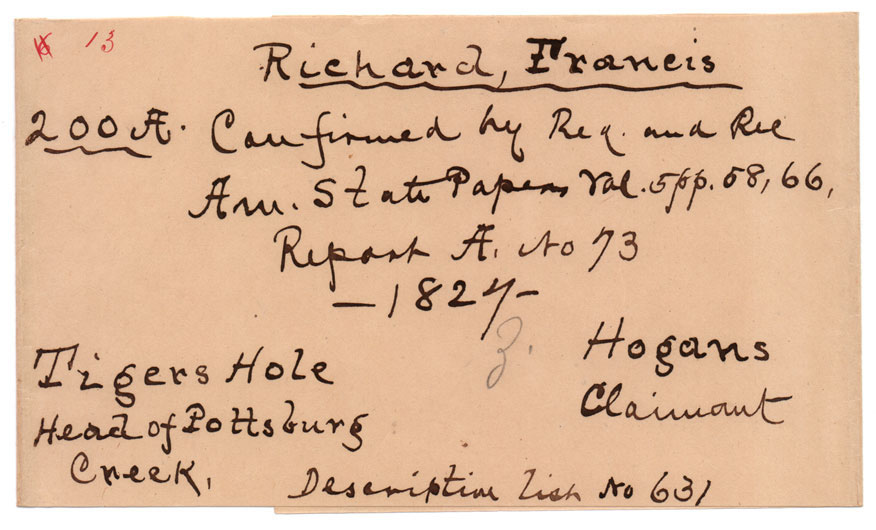 13
Richard, Francis
200 A. Confirmed by Reg. and Rec
Am. State Papers Vol. 5 pp. 58, 66,
Report A. No 73
—1827—
Z. Hogans
Claimant
Tigers Hole
Head of Pottsburg
Creek,
Descriptive List No 631